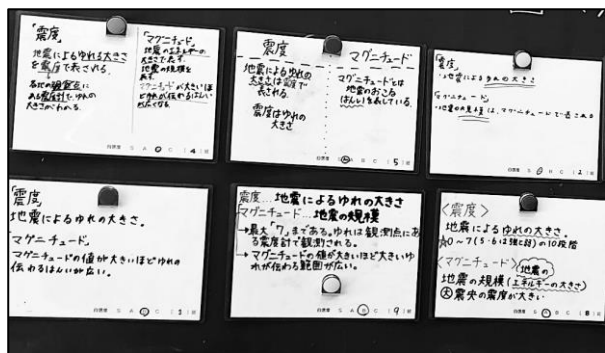 「震度」
地震によるゆれる大きさ
を震度で表される。
各地の観測点に
ある震度計で、ゆれの
大きさがわかる。
「マグニチュード」
地震のエネルギーの
大きさで表す。
地震の規模を
表す。
マグニチュードが大きいほ
自己評価 S A B C ( 4 )班
震度
地震によるゆれの
大きさは震度で
表される。
震度はゆれの
大きさ
マグニチュード
マグニチュードとは
地震のおこる
はんいを表している。
自己評価 S A B C ( 5 )班
「震度」
地震によるゆれの大きさ
「マグニチュード」
地震の規模は、マグニチュードで表される
自己評価 S A B C ( 2 )班
「震度」
地震によるゆれの大きさ。
「マグニチュード」
マグニチュードの値が大きいほどゆれの
伝わるはんいが広い。
自己評価 S A B C
震度…地震によるゆれの大きさ
マグニチュード…地震の規模
→最大“7”まである。ゆれは観測点にあ
る震度計で観測される。
→マグニチュードの値が大きいほど大きいゆ
れが伝わる範囲が広い。
自己評価 S A B C ( 9 )班
〈震度〉
地震によるゆれの大きさ。
☆0〜7(5・6は強と弱)の10段階
〈マグニチュード〉地震の
地震の規模(エネルギーの大きさ)
大 震央の震度が大きい
自己評価 S A B C ( 8 )班